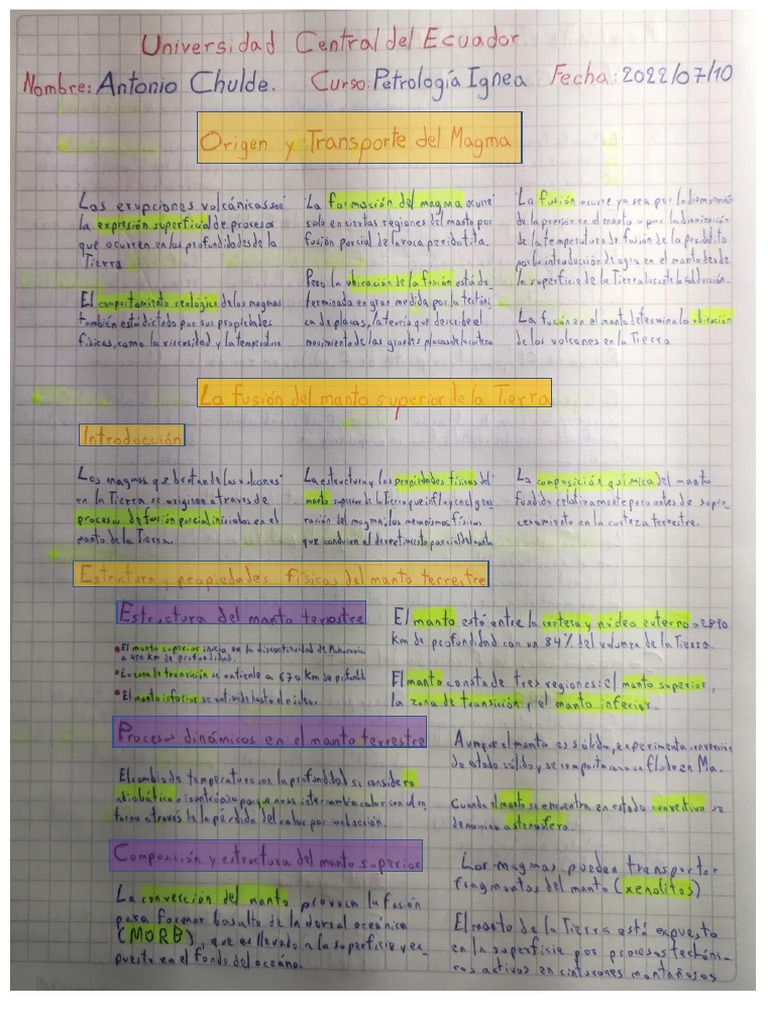 Universidad Central del Ecuador
Nombre: Antonio Chulde. Curso: Petrología Ignea Fecha: 2022/07/10
Origen y Transporte del Magma
Las erupciones volcánicas son
la expresión superficial de procesos
que ocurren en las profundidades de la
Tierra
El comportamiento reológico de los magmas
también está dictado por sus propiedades
físicas, como la viscosidad y la temperatura
La formación del magma ocurre
solo en ciertas regiones del manto por
fusión parcial de la roca peridotita.
Pero la ubicación de la fusión está de-
terminada en gran medida por la tectóni-
ca de placas, la teoría que describe el
movimiento de las grandes placas de la corteza
La fusión ocurre ya sea por la disminución
de la presión en el manto o por la disminución
de la temperatura de fusión de la peridotita
por la introducción de agua en el manto desde
la superficie de la Tierra durante la subducción.
La fusión en el manto determina la ubicación
de los volcanes en la Tierra
La fusión del manto superior de la Tierra
Introducción
Los magmas que brotan de los volcanes
en la Tierra se originan a traves de
procesos de fusión parcial iniciados en el
manto de la Tierra.
La estructura y las propiedades físicas del
manto superior de la Tierra que influyen el gene-
ración del magma; los mecanismos físicos
que conducen al derretimiento parcial del manto
La composición química del manto
fundido relativamente poro antes de su pro-
cesamiento en la corteza terrestre.
Estructura y propiedades físicas del manto terrestre
Estructura del manto terrestre
• El manto superior inicia en la discontinuidad de Mohorovic
a 410 km de profundidad.
• La zona de transición se extiende a 670 km de profundid
• El manto inferior se extiende hasta el núcleo.
El manto está entre la corteza y núcleo externo a 2890
km de profundidad con un 84% del volumen de la Tierra.
El manto consta de tres regiones: el manto superior,
la zona de transición y el manto inferior.
Procesos dinámicos en el manto terrestre
El cambio de temperatura con la profundidad se considera
adiabático e isentrópico porque no se intercambia calor con el en
torno a través de la pérdida del calor por conducción.
Aunque el manto es sólido, experimenta convección
de estado sólido y se comporta como un fluido en Ma.
Cuando el manto se encuentra en estado convectivo se
denomina astenosfera.
Composición y estructura del manto superior
La convección del manto provoca la fusión
para formar basalto de la dorsal oceánica
(MORB), que es llevado a la superficie y ex-
puesto en el fondo del océano.
Los magmas pueden transportar
fragmentos del manto (xenolitos)
El manto de la Tierra está expuesto
en la superficie por procesos tectóni-
cos activos en cinturones montañosos